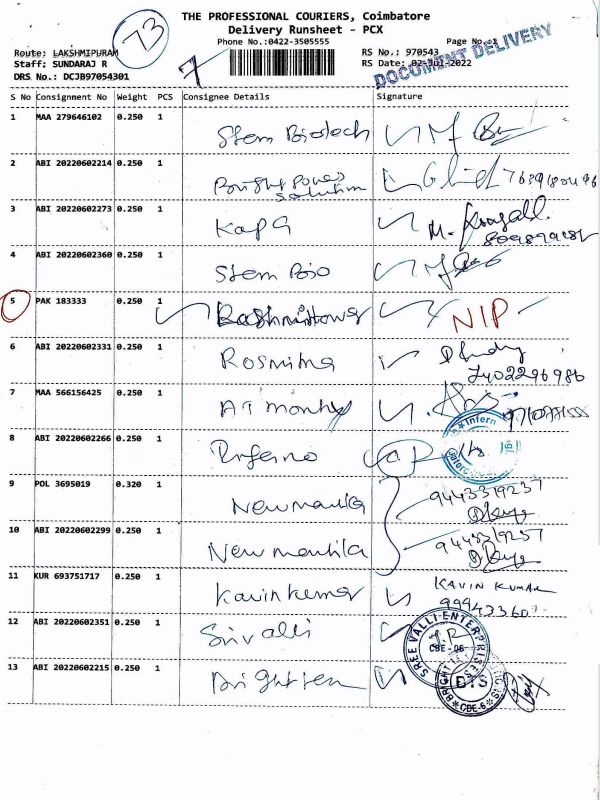 73
THE PROFESSIONAL COURIERS, Coimbatore
Delivery Runsheet - PCX
Phone No.:0422-3505555
Page No.:1
DOCUMENT DELIVERY
Route: LAKSHMIPURAM
RS No.; 970543
Staff: SUNDARAJ R
RS Date: 02-Jul-2022
DRS No.: DCJB97054301
7
S No Consignment No Weight PCS Consignee Details Signature
1 MAA 279646102 0.250 1 Stem Biotech
2 ABI 20220602214 0.250 1 Bright power solution
3 ABI 20220602273 0.250 1 Kapa M.
4 ABI 20220602360 0.250 1 Stem Bio
5 PAK 183333 0.250 1 NIP
6 ABI 20220602331 0.250 1 7402296986
7 MAA 566156425 0.250 1
8 ABI 20220602266 0.250 1 Inferno
9 POL 3695019 0.320 1 New mantra 9443319237
10 ABI 20220602299 0.250 1 New mantra 9443319237
11 KUR 693751717 0.250 1 Kavin Kumar KAVIN KUMAR
12 ABI 20220602351 0.250 1 Srivalli
SREE VALLI ENTERPRISES
CBE-06
13 ABI 20220602215 0.250 1
DTS
CBE-6